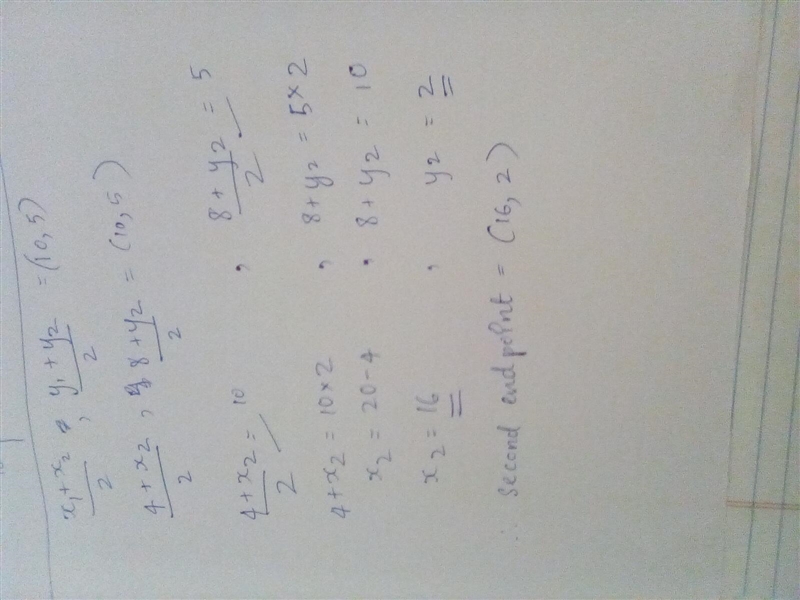 x₁+x₂/2 , y₁+y₂/2 = (10,5)
4+x₂/2 , 8+y₂/2 = (10,5)
4+x₂/2 = 10 , 8+y₂/2 = 5
4+x₂ = 10×2 , 8+y₂ = 5×2
x₂ = 20-4 , 8+y₂ = 10
x₂ = 16 , y₂ = 2
∴ second endpoint = (16, 2)